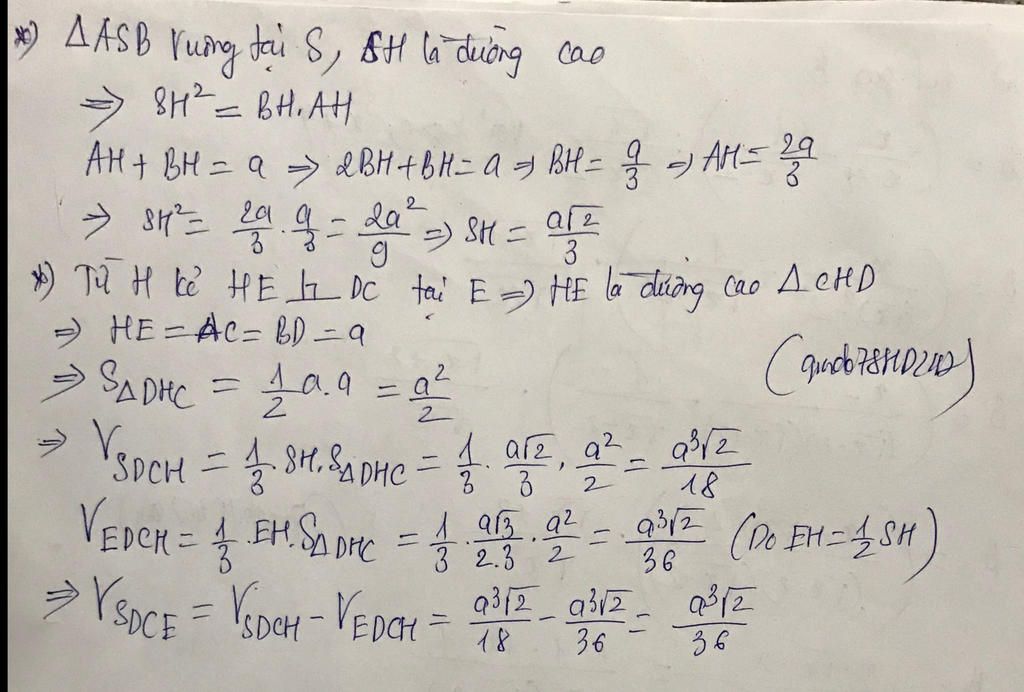 *) ΔASB vuông tại S, SH là đường cao
=> SH² = BH.AH
AH + BH = a => 2BH + BH = a => BH = a/3 => AH = 2a/3
=> SH² = 2a/3 . a/3 = 2a²/9 => SH = a√2/3
*) Từ H kẻ HE ⊥ DC tại E => HE là đường cao ΔCHD
=> HE = AC = BD = a
=> S_ΔDHC = 1/2 a.a = a²/2
=> V_SDCH = 1/3 . SH.S_ΔDHC = 1/3 . a√2/3 . a²/2 = a³√2/18
V_EDCH = 1/3 .EH.S_ΔDHC = 1/3 . a√3/2.3 . a²/2 = a³√2/36 (Do EH = 1/2 SH)
=> V_SDCE = V_SDCH - V_EDCH = a³√2/18 - a³√2/36 = a³√2/36